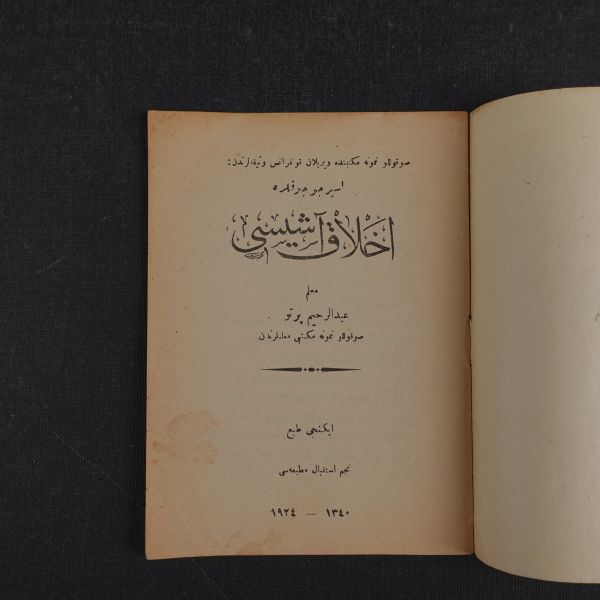 صوقوللو نمونه مكتبنده ويريلان قونفرانس وثيقه‌لرندن:
اسير جوجوقلره
اخلاق آشيسى
معلم
عبدالرحيم پرتو
صوقوللو نمونه مكتبى معلملرندن
ايكنجى طبع
نجم استقبال مطبعه‌سى
١٣٤٠ — ١٩٢٤